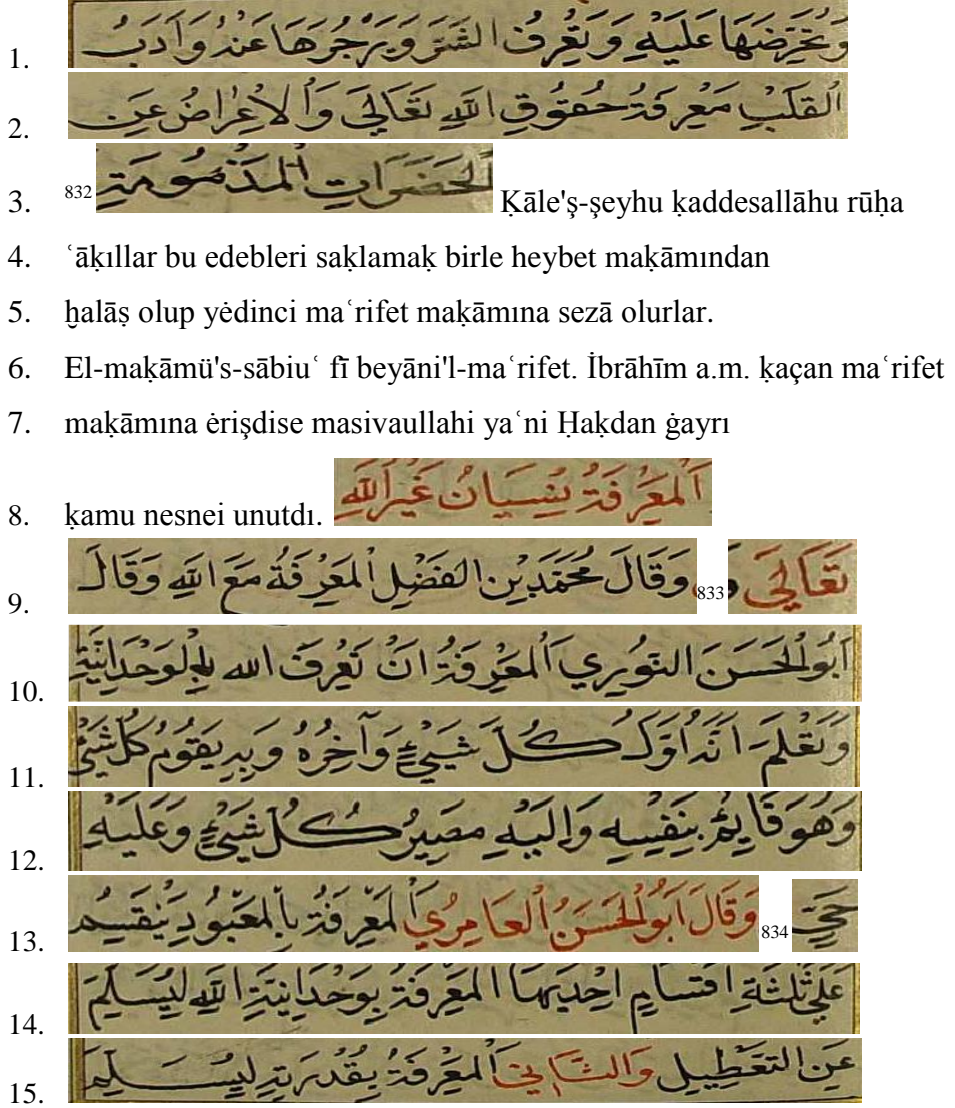 1. وَتُحَرِّضَهَا عَلَيْهِ وَتَعْرِفُ الشَّرَّ وَيَزْجُرَهَا عَنْهُ وَآدَبُ
2. الْقَلْبِ مَعْرِفَةُ حُقُوقِ اللّٰهِ تَعَالَي وَاَلْاِعْرَاضُ عَنِ
3. الْخَطَرَاتِ الْمَذْمُومَةِ 832 Ḳāle'ş-şeyhu ḳaddesallāhu rūḥa
4. ʿāḳıllar bu edebleri saḳlamaḳ birle heybet maḳāmından
5. ḫalāṣ olup yėdinci maʿrifet maḳāmına sezā olurlar.
6. El-maḳāmü's-sābiuʿ fī beyāni'l-maʿrifet. İbrāhīm a.m. ḳaçan maʿrifet
7. maḳāmına ėrişdise masivaullahi yaʿni Ḥaḳdan ġayrı
8. ḳamu nesnei unutdı. اَلْمَعْرِفَةُ نِسْيَانُ غَيْرِ اللّٰهِ
9. تَعَالَي 833 وَقَالَ مُحَمَّدُ بْنِ الْفَضْلِ اَلْمَعْرِفَةُ مَعَ اللّٰهِ وَقَالَ
10. اَبُو الْحَسَنَ النُّورِي اَلْمَعْرِفَةُ اَنْ تَعْرِفَ الله بِالْوَحْدَانِيَّةِ
11. وَتَعْلَمَ اَنَّهُ اَوَّلُ كُلَّ شَيْءٍ وَآخِرُهُ وَبِهِ يَقُومُ كُلُّ شَيْءٍ
12. وَهُوَ قَايِمٌ بِنَفْسِهِ وَاِلَيْهِ مَصِيرُ كُلِّ شَيْءٍ وَعَلَيْهِ
13. 834 وَقَالَ اَبُو الْحَسَنُ الْعَامِرِي اَلْمَعْرِفَةُ بِالْمَعْبُودِ يَنْقَسِمُ
14. عَلَي ثَلٰثَةِ اَقْسَامٍ اِحْدَيهَا اَلْمَعْرِفَةُ بِوَحْدَانِيَّةِ اللّٰهِ لِيَسْلَمَ
15. عَنِ التَّعْطِيلِ وَالثَّانِي اَلْمَعْرِفَةُ بِقُدْرَتِهِ لِيَسْلَمَ